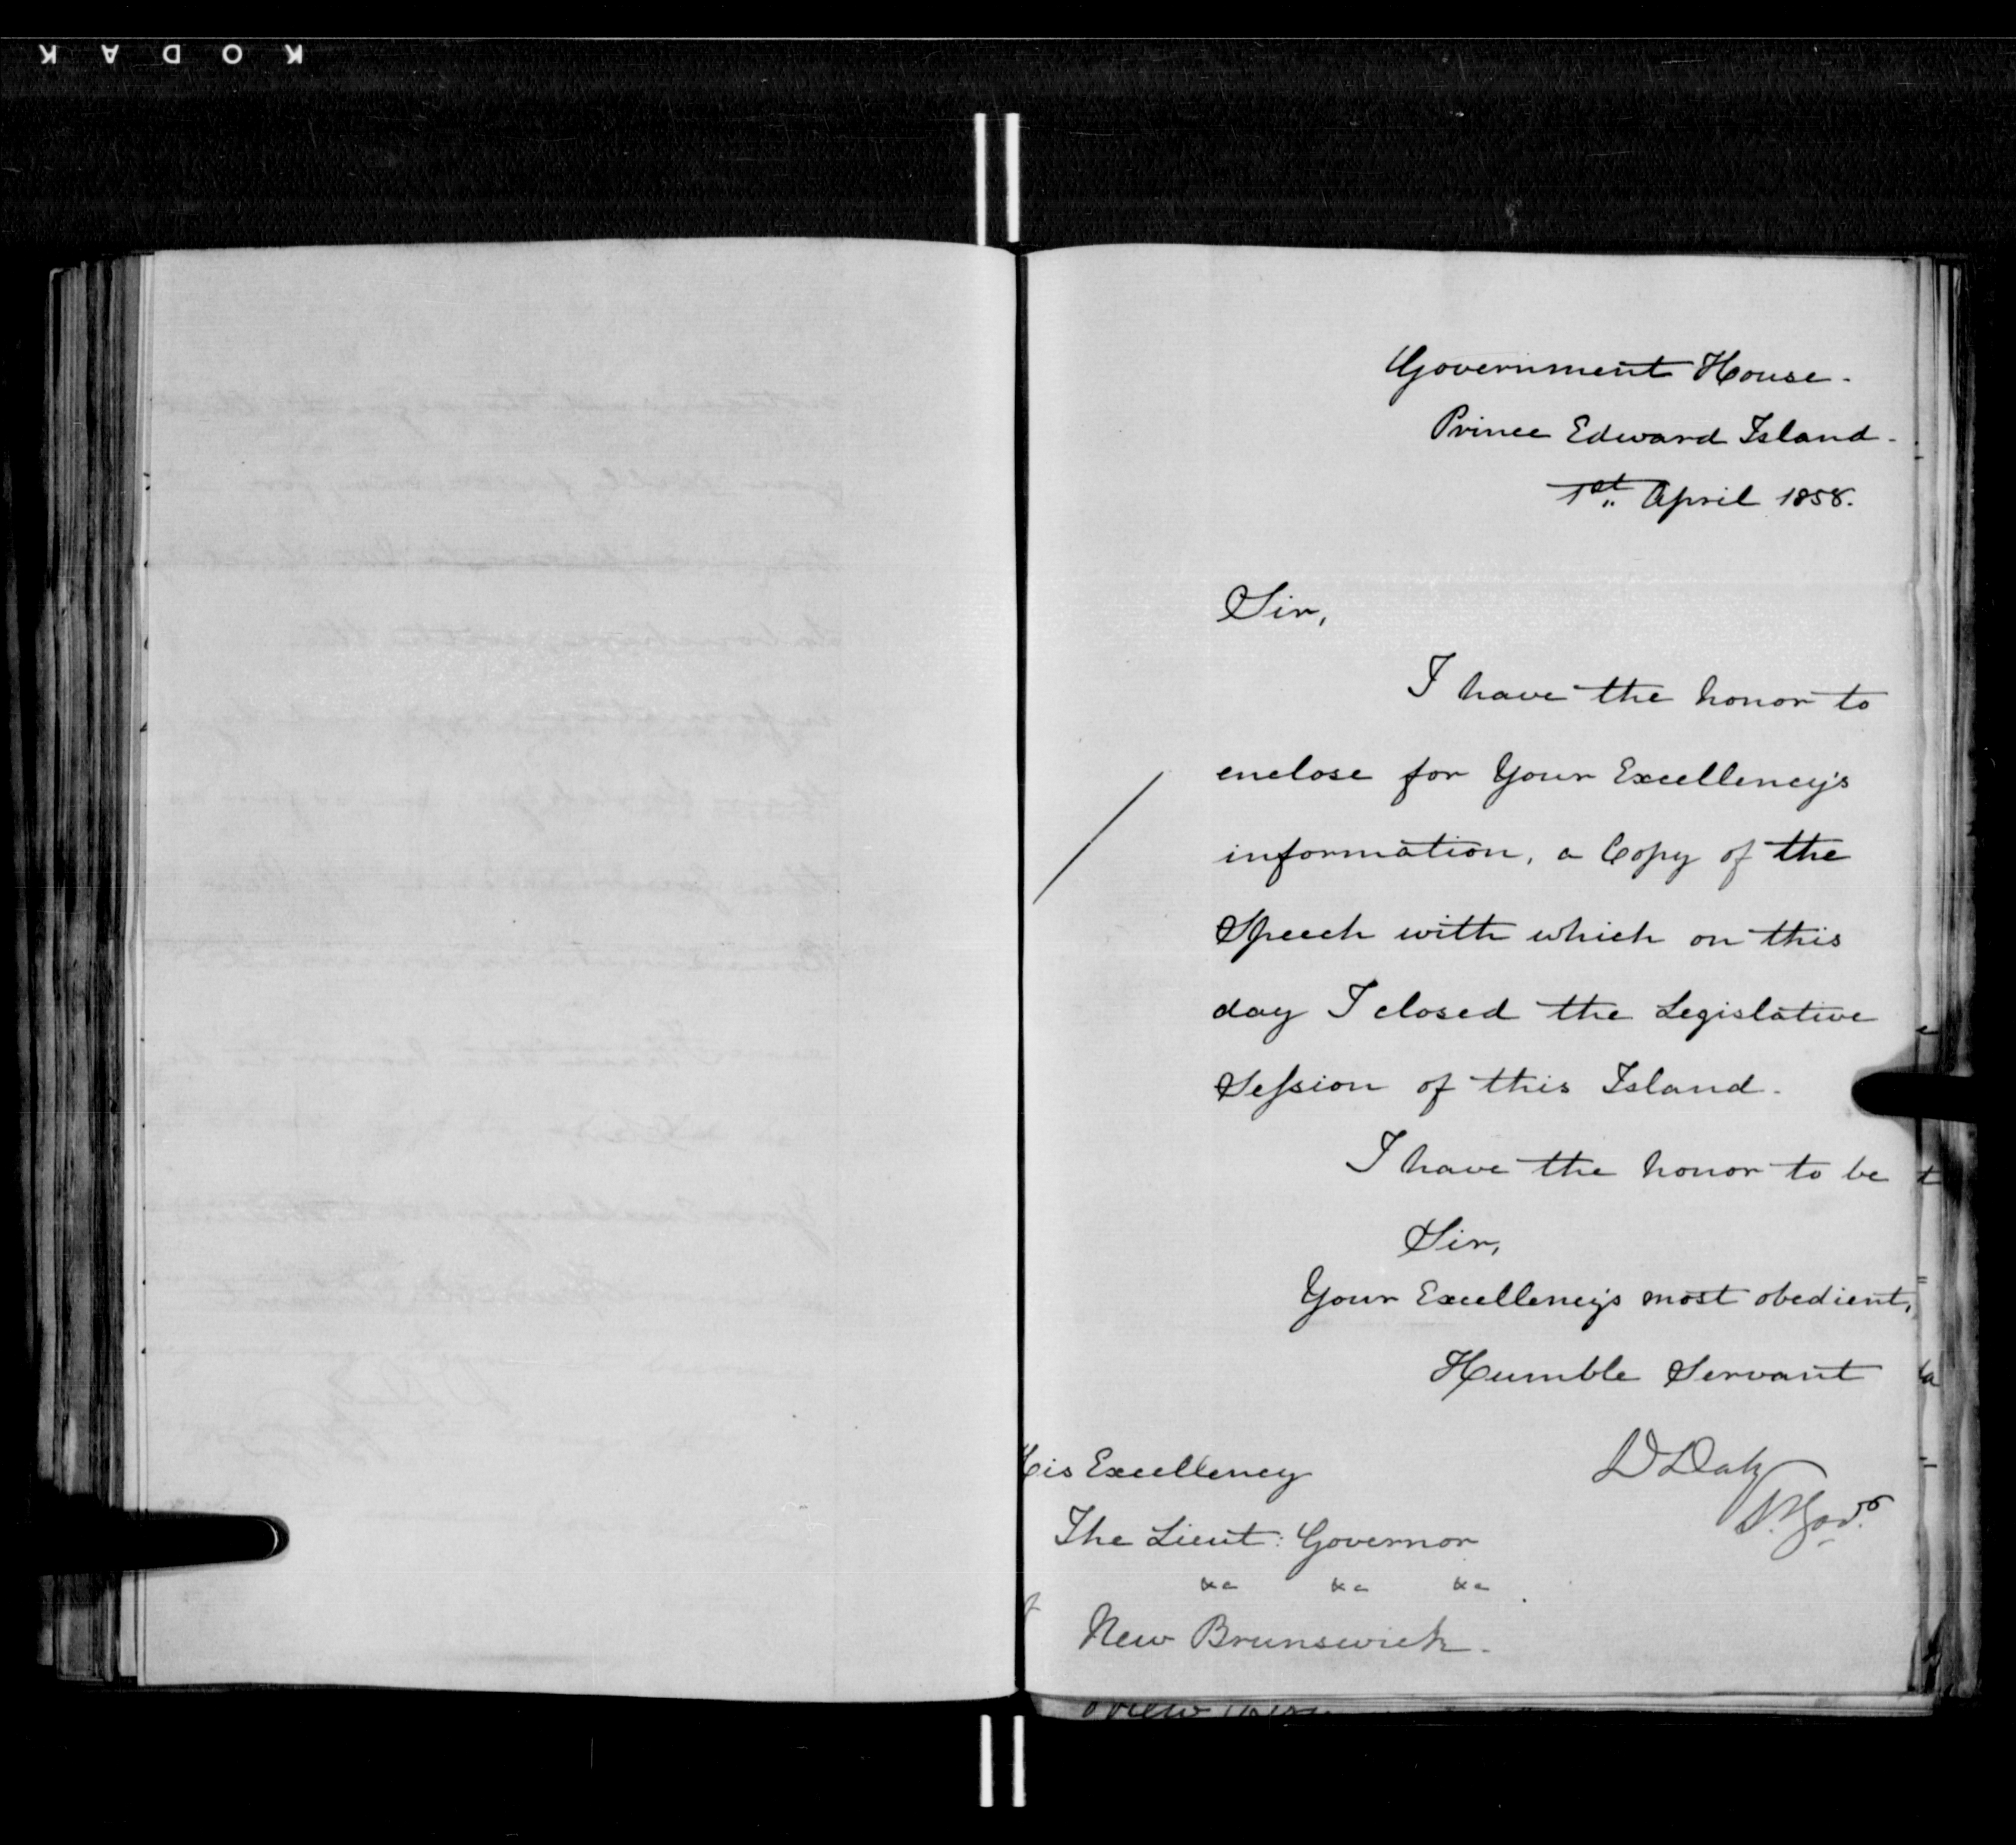 KODAK
Government House.
Prince Edward Island.
1st April 1858.
Sir,
I have the honor to
enclose for Your Excellency's
information, a Copy of the
Speech with which on this
day I closed the Legislative
Session of this Island.
I have the honor to be
Sir,
Your Excellency's most obedient,
Humble Servant
D Daly
Lt. Govr.
His Excellency
The Lieut: Governor
&c &c &c
of
New Brunswick.